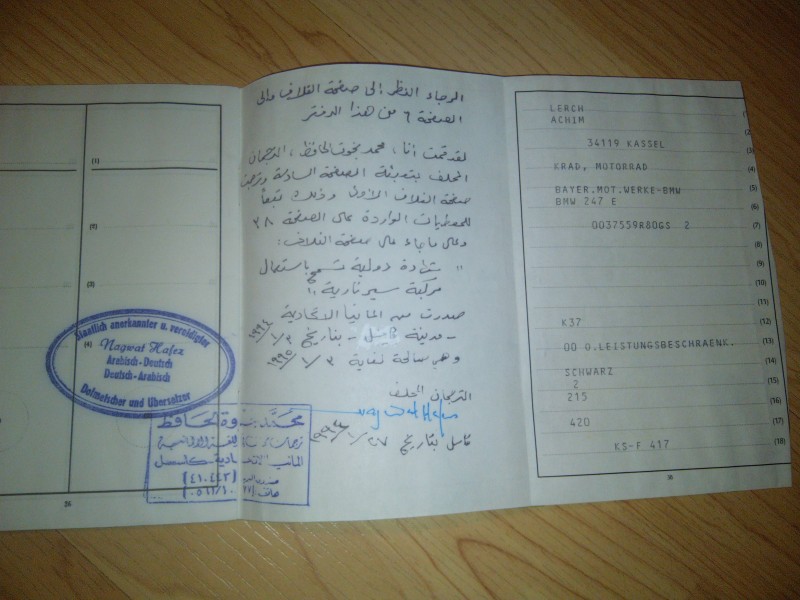 (1)
(2)
(3)
(4)
Staatlich anerkannter u. vereidigter
Nagwat Hafez
Arabisch-Deutsch
Deutsch-Arabisch
Dolmetscher und Übersetzer
25
الرجاء النظر إلى صفحة الغلاف وإلى
الصفحة ٦ من هذا الدفتر
لقد قمت أنا، محمد نجوت الحافظ، الترجمان
المحلف بتعبئة الصفحة السادسة وترجمت
صفحة الغلاف الأولى وذلك تبعاً
للمعطيات الواردة على الصفحة ٣٨
وعلى ما جاء على صفحة الغلاف:
" شهادة دولية تسمح باستعمال
مركبة سير نارية "
صدرت من المانيا الاتحادية
- مدينة كاسل - بتاريخ ٣ / ١ / ١٩٩٤
وهي صالحة لغاية ٣ / ١ / ١٩٩٥
الترجمان المحلف
كاسل بتاريخ ٢٧ / ١ /
الحافظ
المانيا الاتحادية كاسل
LERCH
ACHIM
34119 KASSEL
KRAD, MOTORRAD
BAYER.MOT.WERKE-BMW
BMW 247 E
0037559R80GS 2
K37
00 O.LEISTUNGSBESCHRAENK.
SCHWARZ
2
215
420
KS-F 417
(1)
(2)
(3)
(4)
(5)
(6)
(7)
(8)
(9)
(10)
(11)
(12)
(13)
(14)
(15)
(16)
(17)
(18)